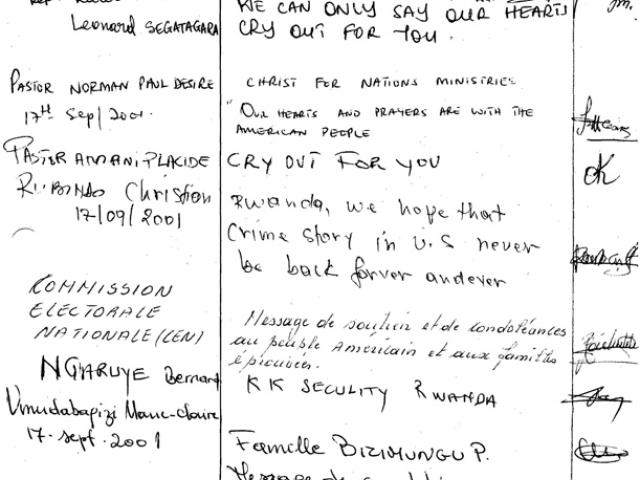 WE CAN ONLY SAY OUR HEARTS
Leonard SEGATAGARA
CRY OUT FOR YOU.
PASTOR NORMAN PAUL DESIRE
CHRIST FOR NATIONS MINISTRIES
17th Sep/2001.
"OUR HEARTS AND PRAYERS ARE WITH THE
AMERICAN PEOPLE
PASTER AMANI PLACIDE
CRY OUT FOR YOU
OK
Christian
17/09/2001
Rwanda, we hope that
Crime story in U.S never
be back forver andever
COMMISSION
ELECTORALE
NATIONALE (CEN)
Message de soutien et de condoléances
au peuple Américain et aux familles
éprouvées.
NGARUYE Bernard
KK SECULITY RWANDA
Umudabagizi Marie-Claire
17. sept. 2001
Famille BIZIMUNGU P.